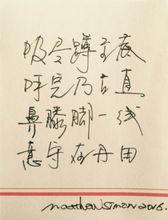 吸号蹲主哀
呼完乃古直
鼻膝脚一线
意守在丹田
matthewsimon2015.